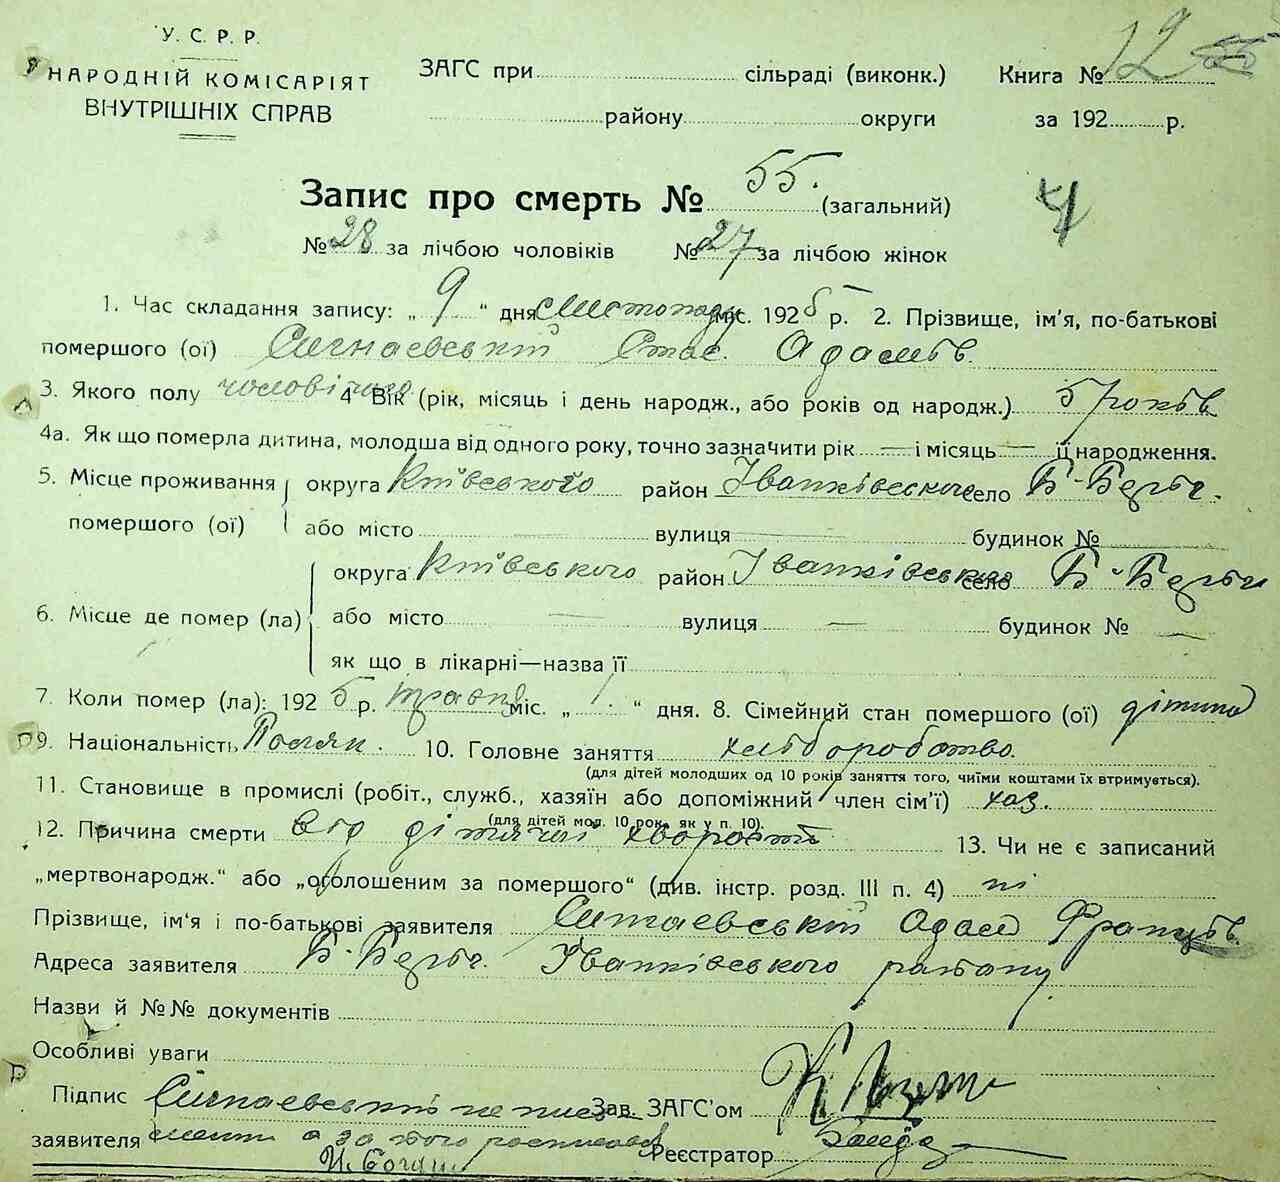 У. С. Р. Р.
НАРОДНІЙ КОМІСАРІЯТ
ВНУТРІШНІХ СПРАВ
ЗАГС при сільраді (виконк.)
району округи
Книга № 12
за 192 р.
Запис про смерть № 55. (загальний)
№ 28 за лічбою чоловіків № 27 за лічбою жінок
1. Час складання запису: „ 9 “ дня листопаду міс. 1925 р. 2. Прізвище, ім'я, по-батькові
помершого (ої) Стас. Адамів.
3. Якого полу чоловічого 4 Вік (рік, місяць і день народж., або років од народж.) 5 років
4а. Як що померла дитина, молодша від одного року, точно зазначити рік — і місяць — її народження.
5. Місце проживання помершого (ої) округа Київського район Іванківського село Б-Берег.
або місто вулиця будинок №
6. Місце де помер (ла) округа Київського район Іванківського село Б-Берег
або місто — вулиця — будинок № —
як що в лікарні—назва її
7. Коли помер (ла): 1925 р. травня міс. „ 1 “ дня. 8. Сімейний стан помершого (ої) дітина
9. Національність Поляк. 10. Головне заняття хліборобство.
(для дітей молодших од 10 років заняття того, чиїми коштами їх втримується).
11. Становище в промислі (робіт., служб., хазяїн або допоміжний член сім'ї) хаз.
(для дітей мол. 10 рок. як у п. 10).
12. Причина смерти від дітячої хворости 13. Чи не є записаний
„мертвонародж.“ або „оголошеним за помершого“ (див. інстр. розд. III п. 4) ні
Прізвище, ім'я і по-батькові заявителя Адам Франців.
Адреса заявителя Б-Берег. Іванківського району
Назви й №№ документів
Особливі уваги
Підпис не Зав. ЗАГС'ом
заявителя а за його Реєстратор